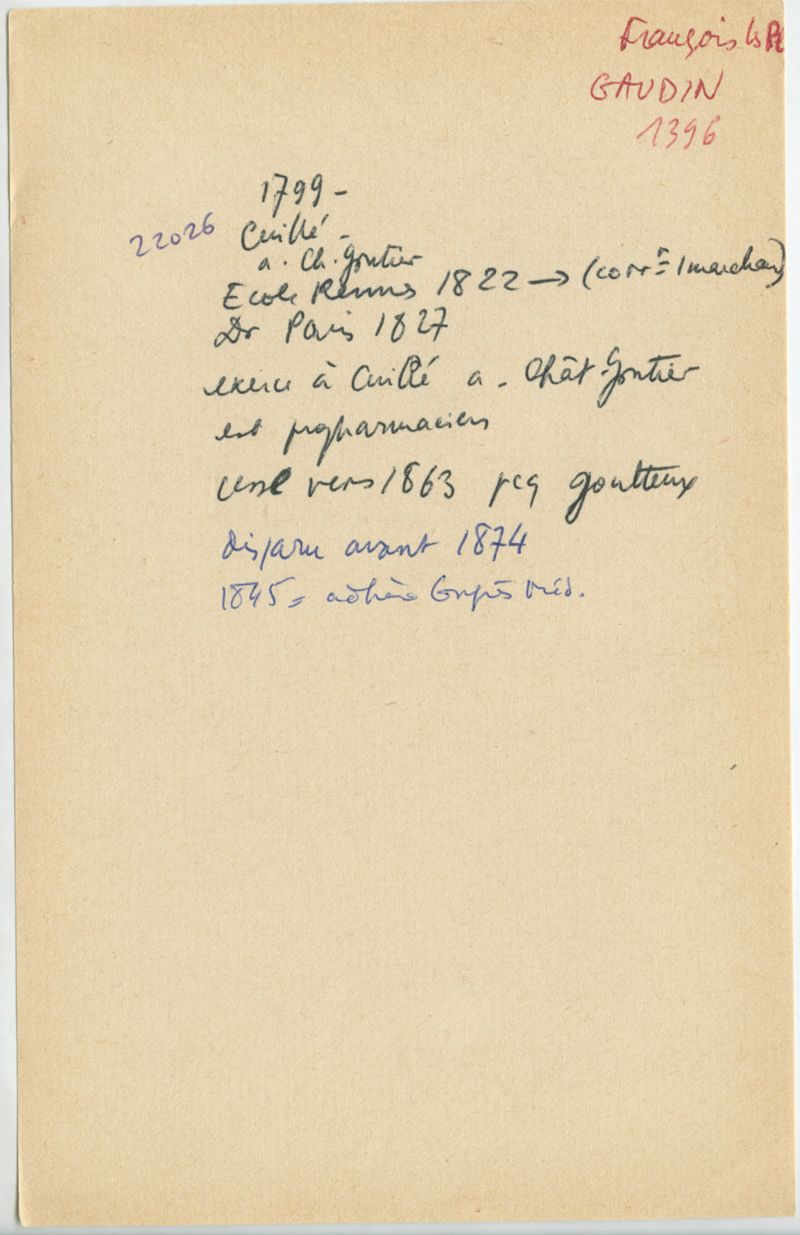 François
GAUDIN
1396
1799 -
22026 Cuillé -
a. Ch. Gontier
Ecole Rennes 1822 → (corrt = 1 marchand)
Dr Paris 1827
exerce à Cuillé a. Chât-Gontier
est propharmacien
cesse vers 1863 pcq goutteux
disparu avant 1874
1845 = adhère Congrès Méd.